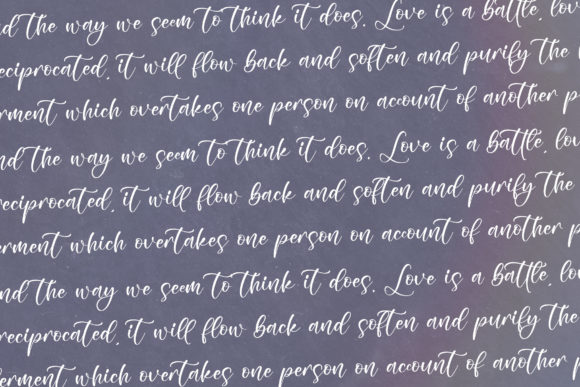 nd the way we seem to think it does. Love is a battle, lov
reciprocated, it will flow back and soften and purify the
erment which overtakes one person on account of another p
nd the way we seem to think it does. Love is a battle, lov
reciprocated, it will flow back and soften and purify the
erment which overtakes one person on account of another p
nd the way we seem to think it does. Love is a battle, lov
reciprocated, it will flow back and soften and purify the
erment which overtakes one person on account of another p